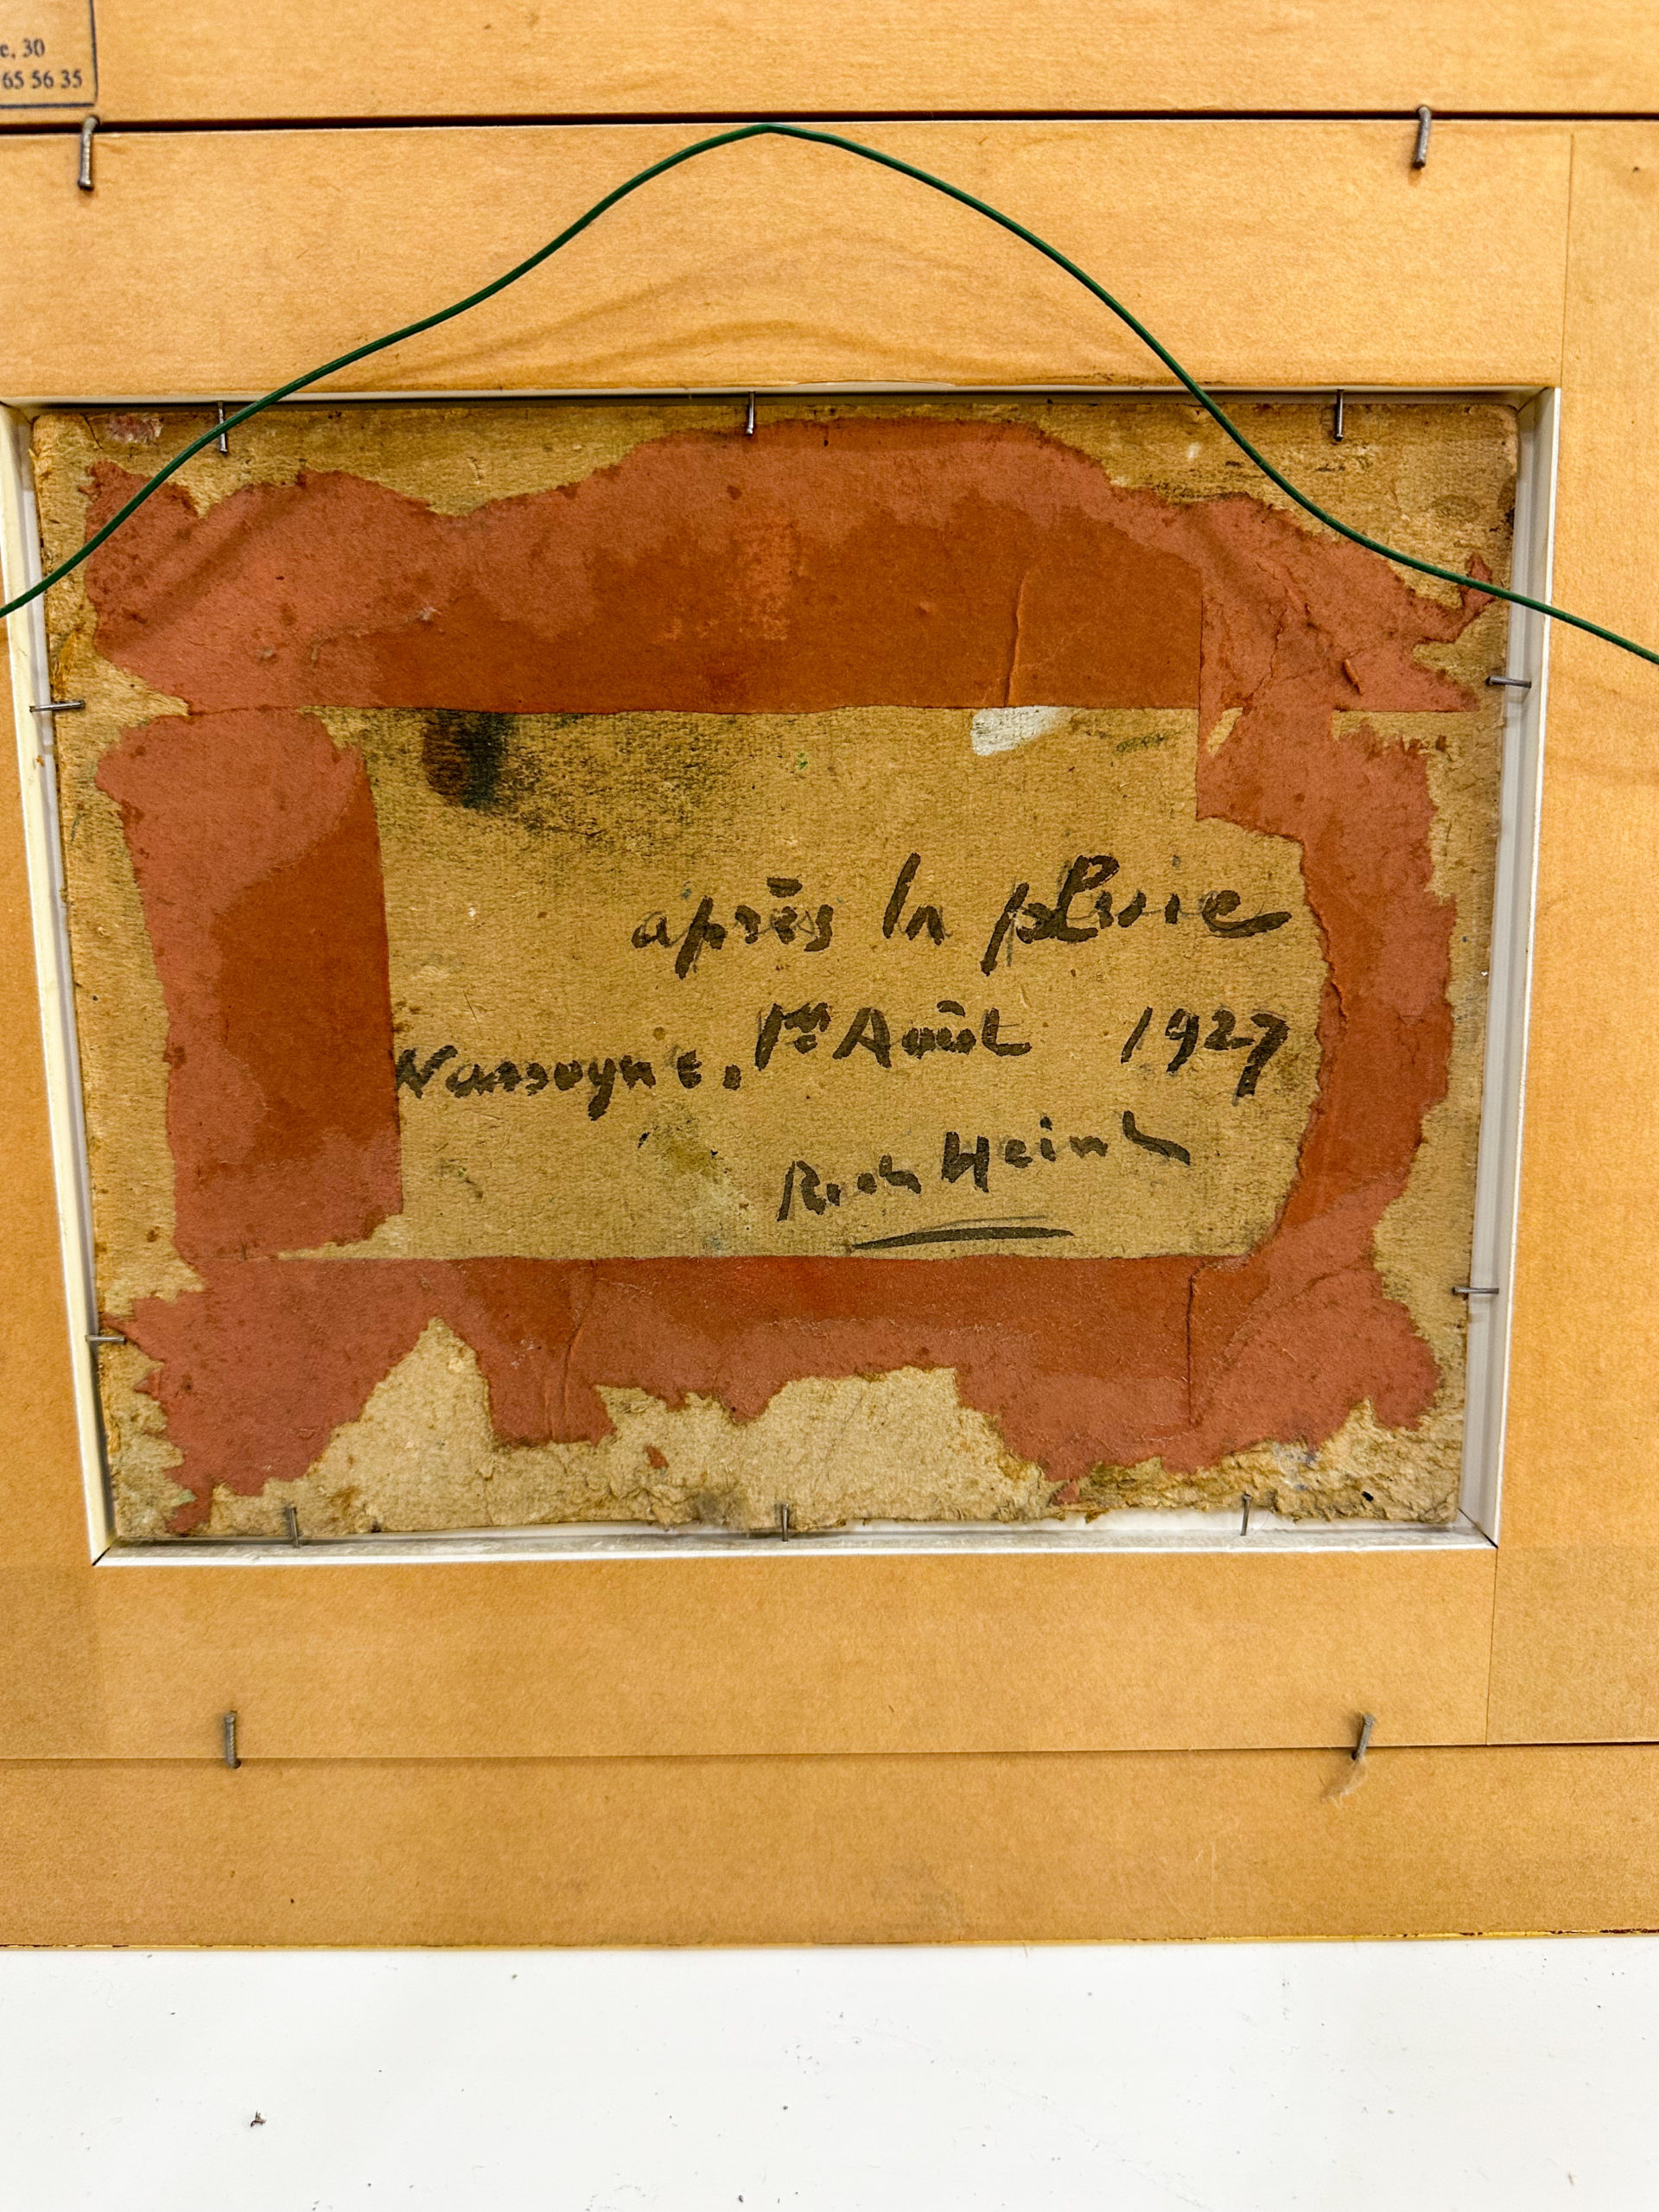 e, 30
65 56 35
après la pluie
Nassogne, 1er Août 1927
Rich Heintz